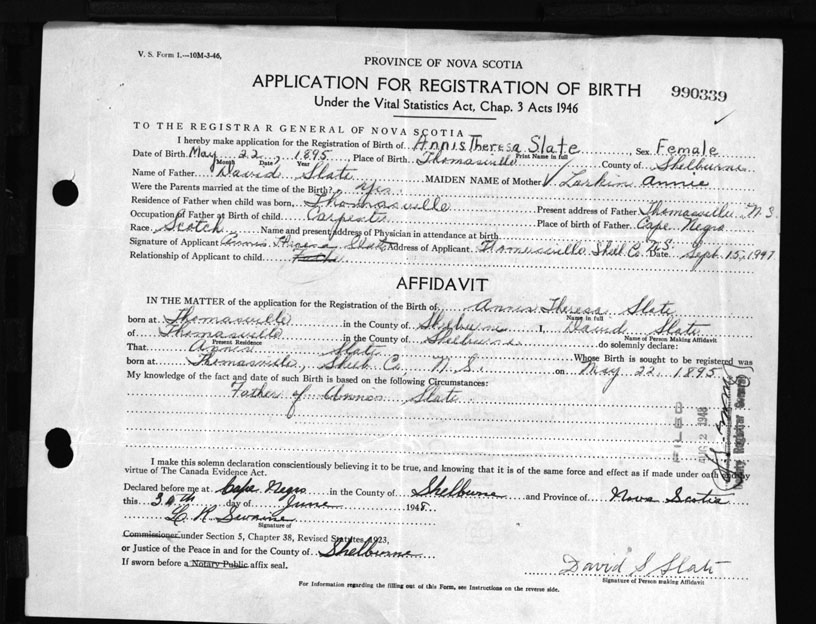 V. S. Form 1.—10M-3-46,
PROVINCE OF NOVA SCOTIA
APPLICATION FOR REGISTRATION OF BIRTH
990339
Under the Vital Statistics Act, Chap. 3 Acts 1946
TO THE REGISTRAR GENERAL OF NOVA SCOTIA
I hereby make application for the Registration of Birth of Annis Theresa Slate, Sex Female
Print Name in full
Date of Birth May 22, 1895 Place of Birth Thomasville County of Shelburne
Month Date Year
Name of Father David Slate MAIDEN NAME of Mother Larkin Annie
Were the Parents married at the time of the Birth? yes
Residence of Father when child was born Thomasville Present address of Father Thomasville N.S.
Occupation of Father at Birth of child Carpenter Place of birth of Father Cape Negro
Race Scotch Name and present address of Physician in attendance at birth N.S.
Signature of Applicant Annis Theresa Slate Address of Applicant Thomasville Shel. Co. Date Sept. 15, 1947
Relationship of Applicant to child
AFFIDAVIT
IN THE MATTER of the application for the Registration of Birth of Annis Theresa Slate
Name in full
born at Thomasville in the County of Shelburne I, David Slate
Name of Person Making Affidavit
of Thomasville in the County of Shelburne do solemnly declare:
Present Residence
That Annis Slate Whose Birth is sought to be registered was
born at Thomasville, Shelb Co. N.S. on May 22, 1895
My knowledge of the fact and date of such Birth is based on the following Circumstances:
Father of Annis Slate
I make this solemn declaration conscientiously believing it to be true, and knowing that it is of the same force and effect as if made under oath and by
virtue of The Canada Evidence Act.
Declared before me at Cape Negro in the County of Shelburne and Province of Nova Scotia
this 30th day of June 1948
Signature of
Commissioner under Section 5, Chapter 38, Revised Statutes, 1923,
or Justice of the Peace in and for the County of Shelburne
If sworn before a Notary Public affix seal.
David S Slate
Signature of Person making Affidavit
For Information regarding the filling out of this Form, see Instructions on the reverse side.